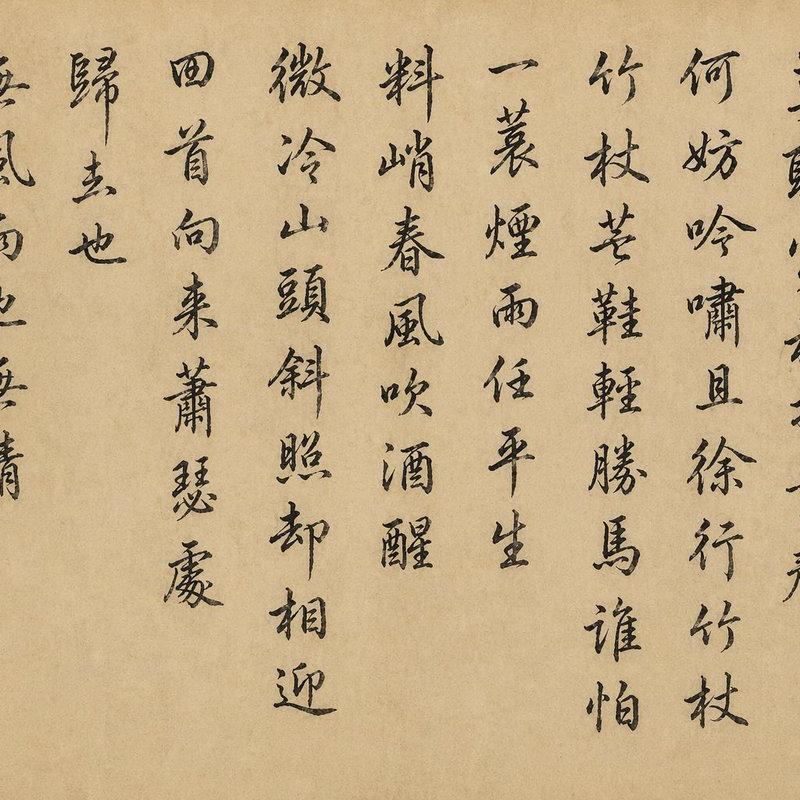 何妨吟嘯且徐行竹杖
竹杖芒鞋輕勝馬誰怕
一蓑煙雨任平生
料峭春風吹酒醒
微冷山頭斜照却相迎
回首向来蕭瑟處
歸去也
無風雨也無晴